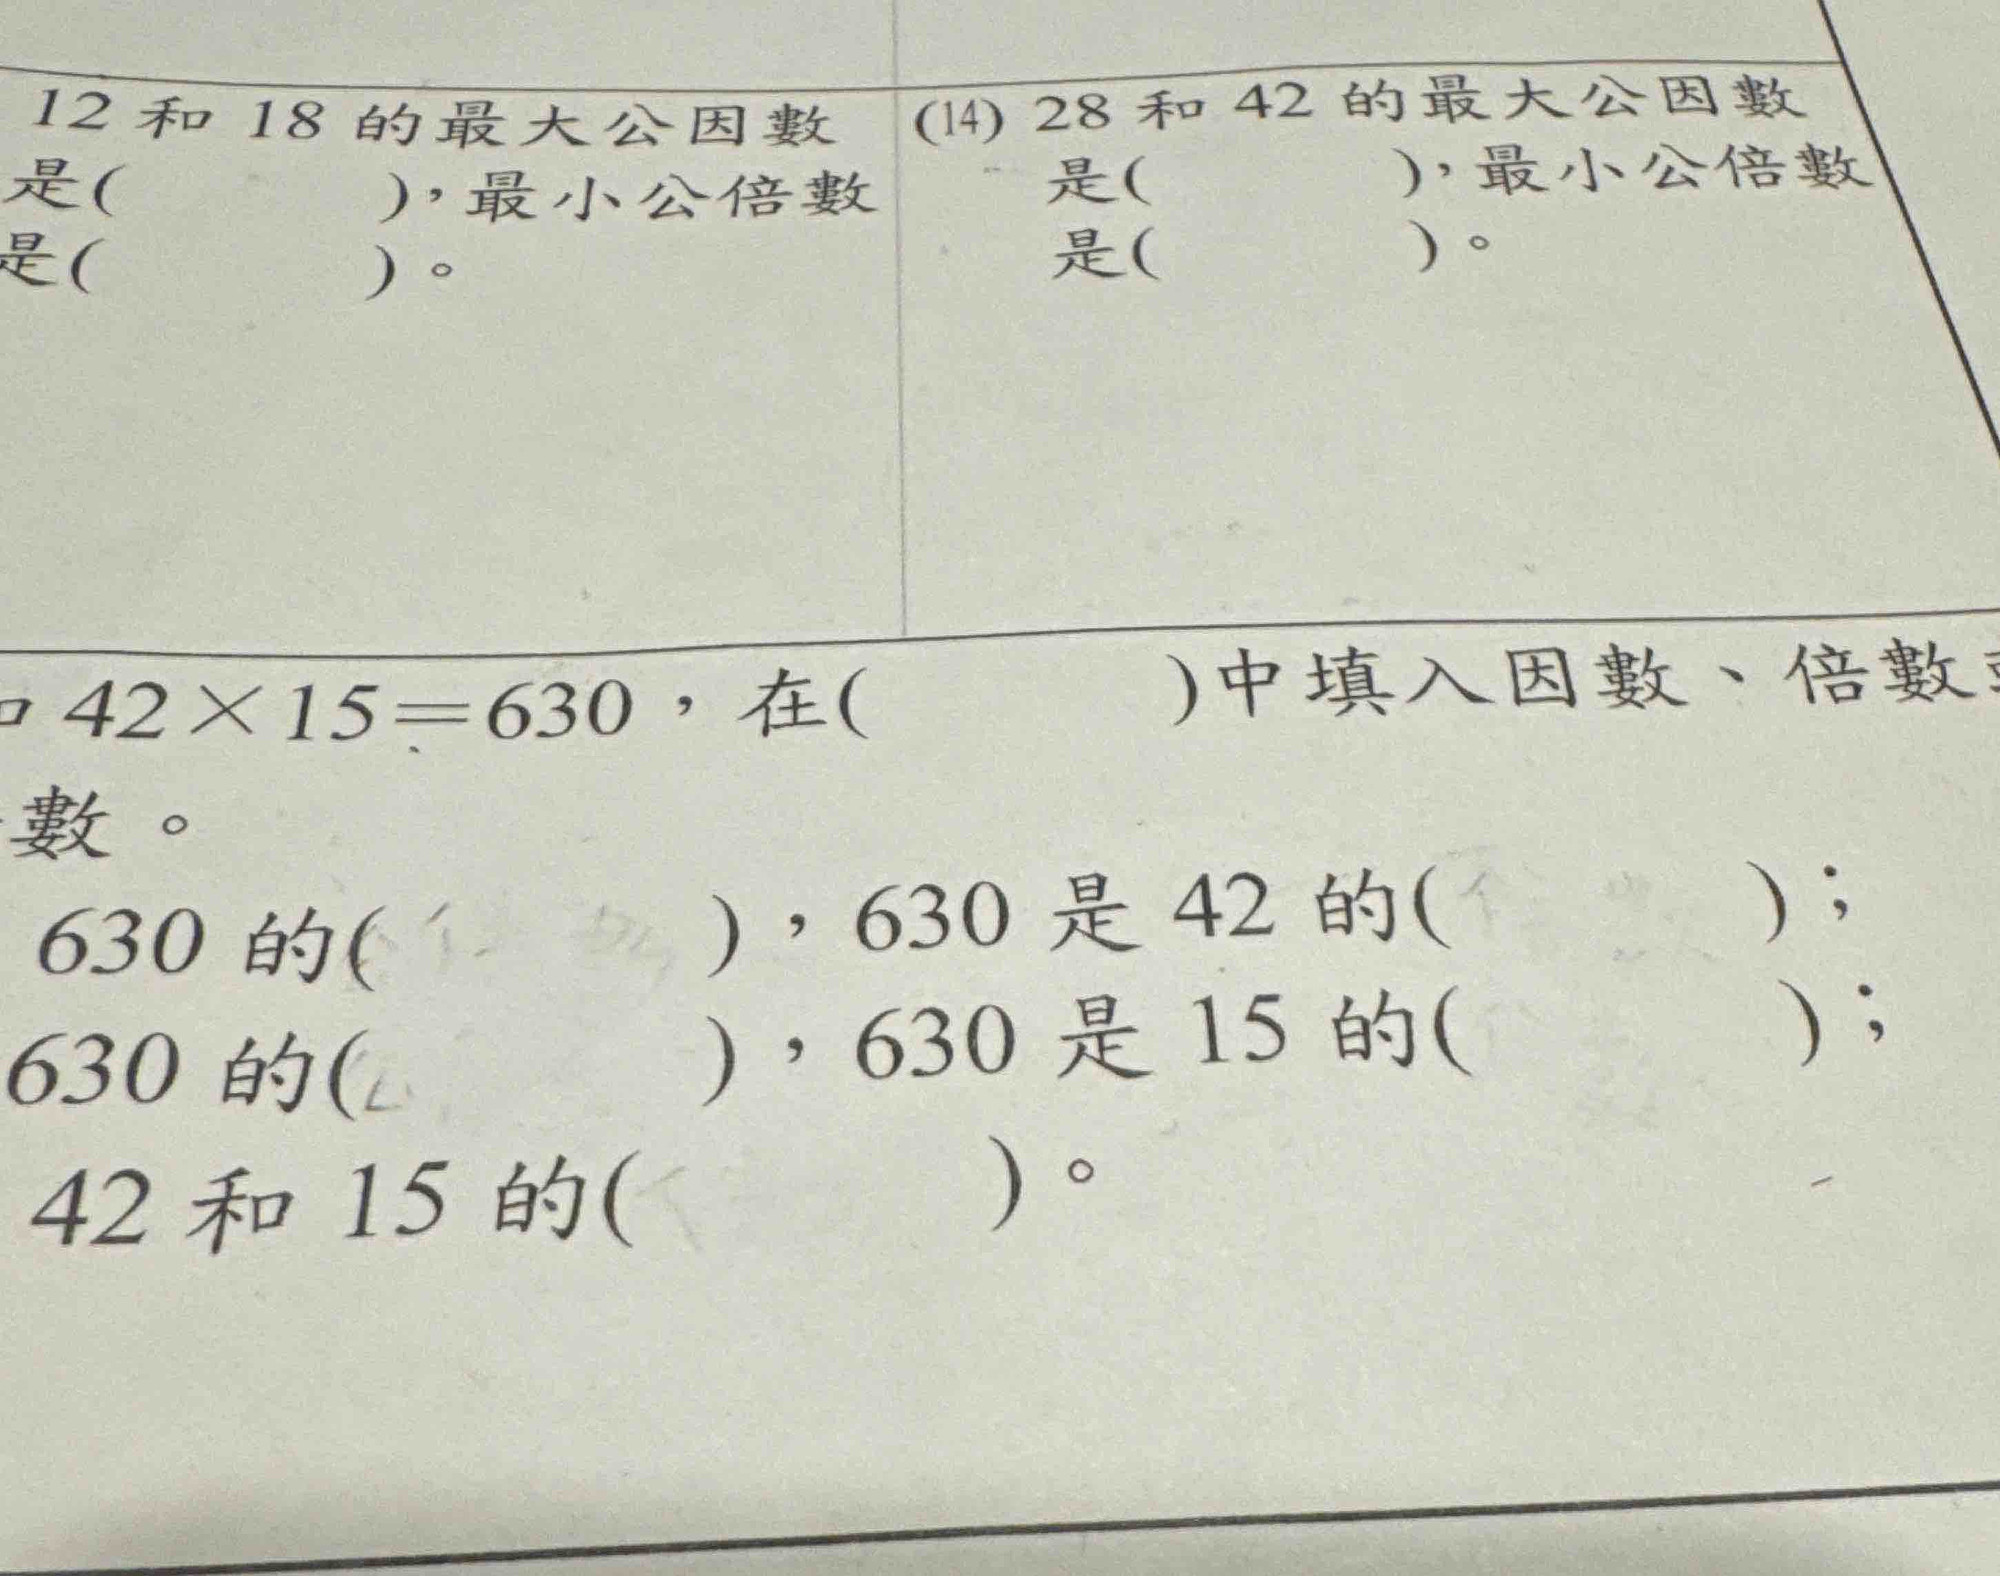 12 和 18 的最大公因數
是(　　　),最小公倍數
是(　　　)。
(14) 28 和 42 的最大公因數
是(　　　),最小公倍數
是(　　　)。
42×15=630,在(　　　)中填入因數、倍數
數。
630 的(　　　),630 是 42 的(　　　);
630 的(　　　),630 是 15 的(　　　);
42 和 15 的(　　　)。